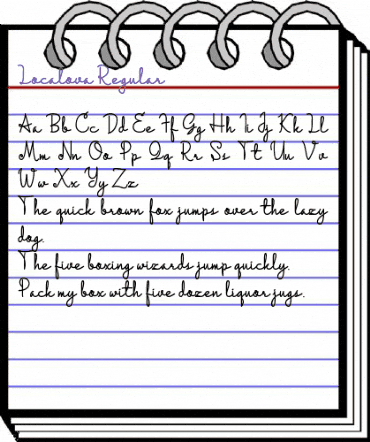 Localova Regular
Aa Bb Cc Dd Ee Ff Gg Hh Ii Jj Kk Ll
Mm Nn Oo Pp Qq Rr Ss Tt Uu Vv
Ww Xx Yy Zz
The quick brown fox jumps over the lazy
dog.
The five boxing wizards jump quickly.
Pack my box with five dozen liquor jugs.